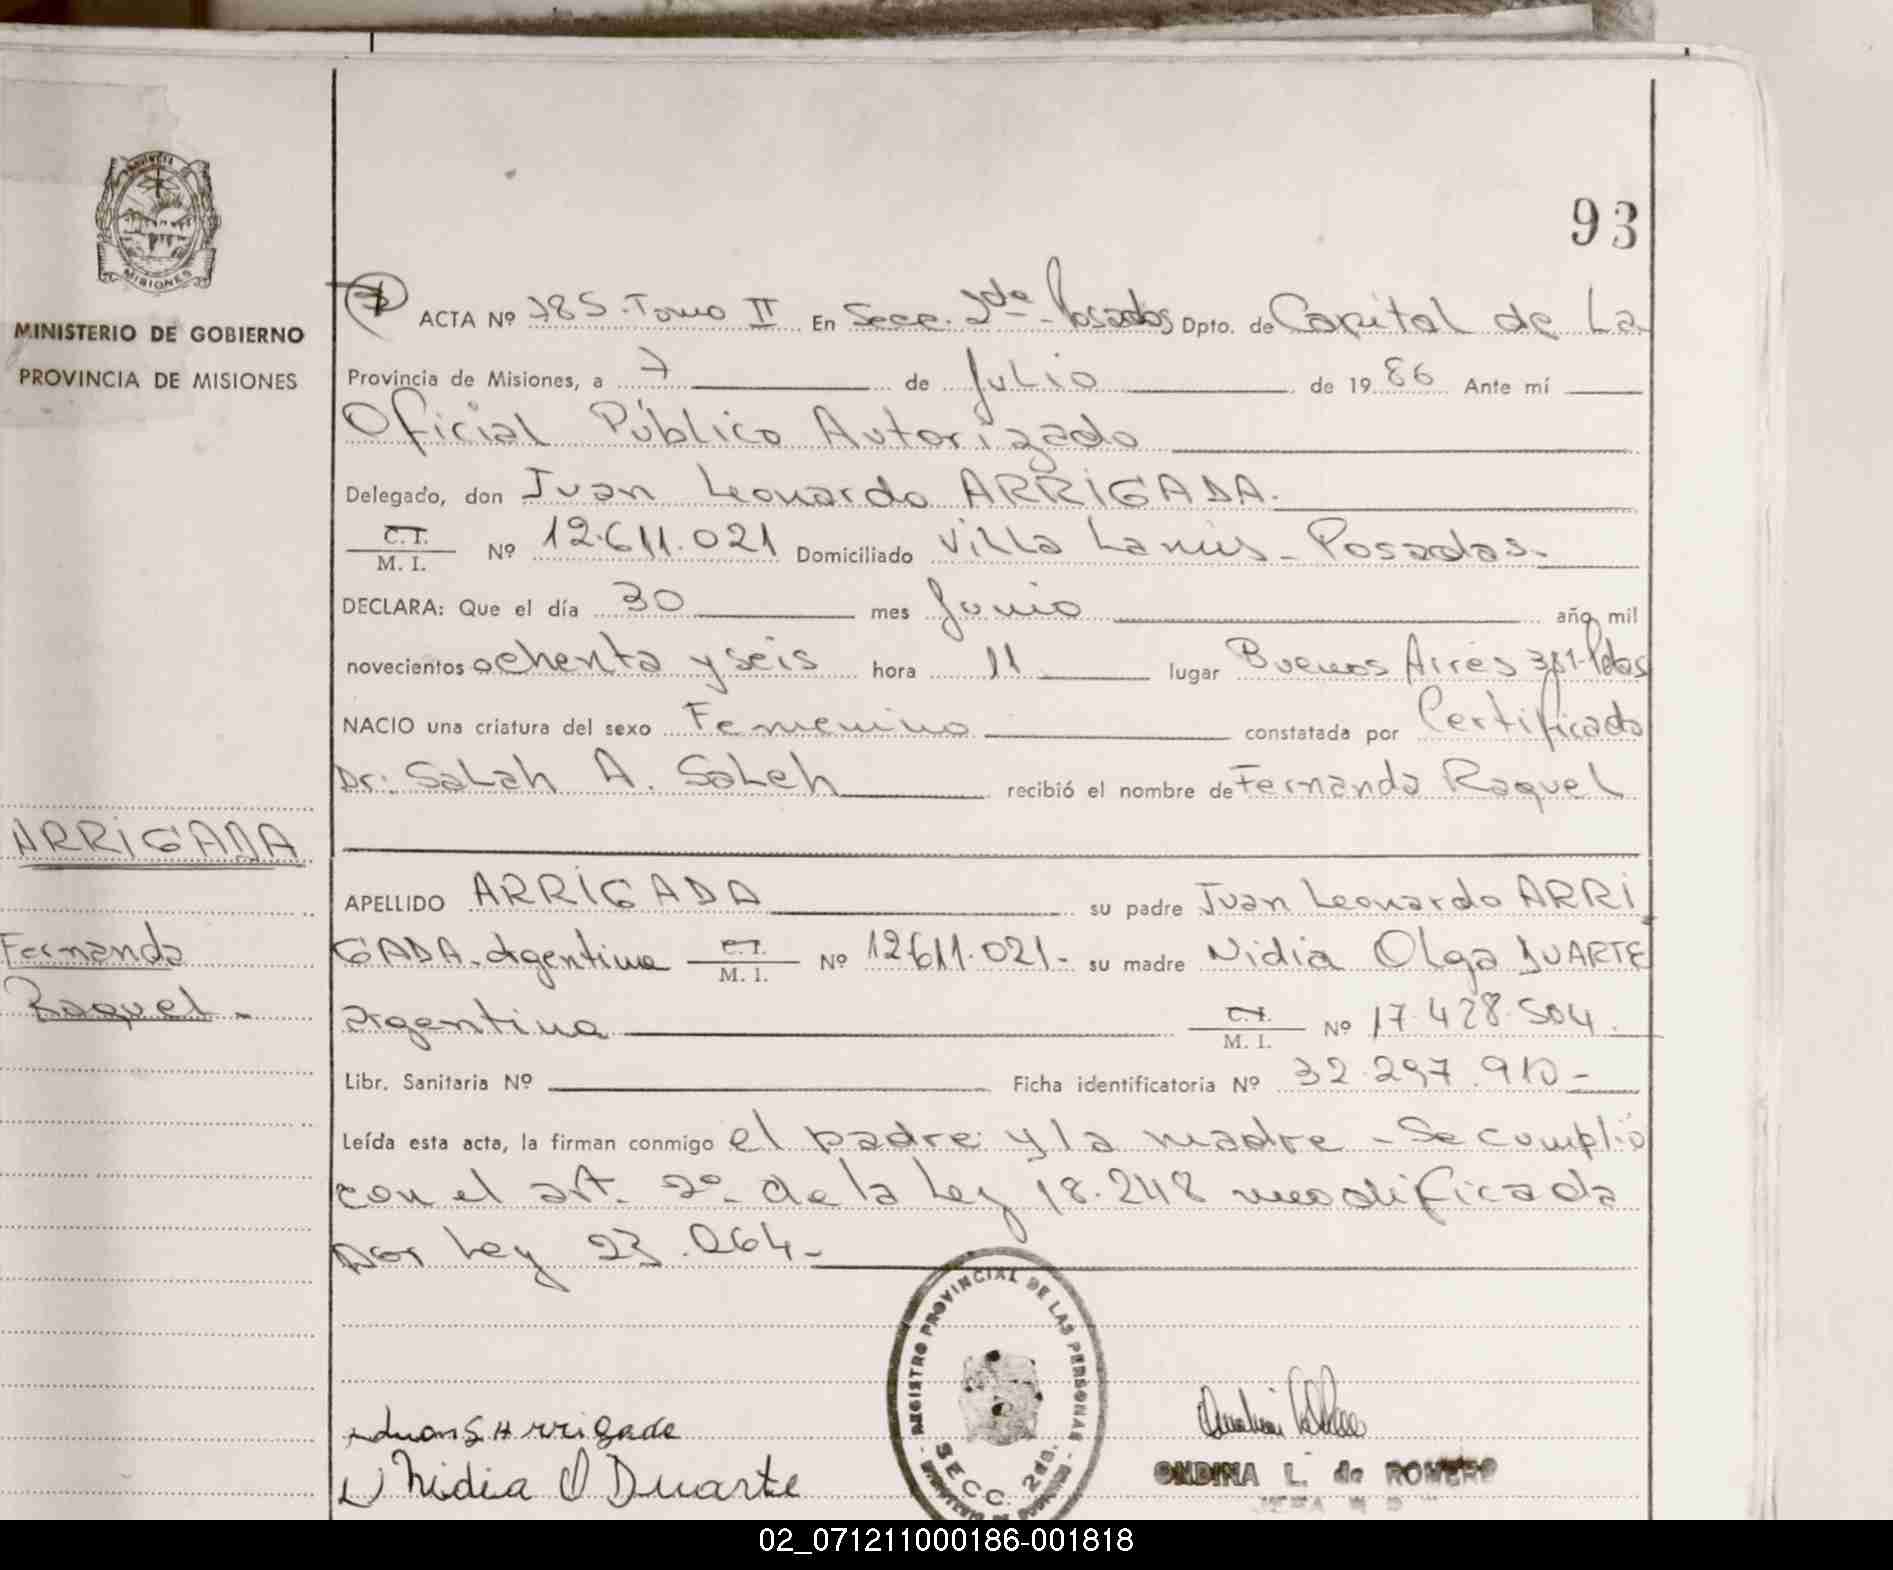 93
PROVINCIA
MISIONES
MINISTERIO DE GOBIERNO
PROVINCIA DE MISIONES
ACTA Nº 785. Tomo II En Secc. 2da Posadas Dpto. de Capital de La
Provincia de Misiones, a 7 de Julio de 1986 Ante mí
Oficial Público Autorizado
Delegado, don Juan Leonardo ARRIGADA.
C.I.
M. I. Nº 12.611.021 Domiciliado Villa Lanús - Posadas.
DECLARA: Que el día 30 mes Junio año mil
novecientos ochenta y seis hora 11 lugar Buenos Aires 381-Pdas
NACIO una criatura del sexo Femenino constatada por Certificado
Dr: Salah A. Saleh recibió el nombre de Fernanda Raquel
ARRIGADA
Fernanda
Raquel.
APELLIDO ARRIGADA su padre Juan Leonardo ARRI
GADA. Argentino C.I. M. I. Nº 12.611.021- su madre Nidia Olga DUARTE
argentina C.I. M. I. Nº 17.428.504.
Libr. Sanitaria Nº Ficha identificatoria Nº 32.297.910-
Leída esta acta, la firman conmigo el padre y la madre - Se cumplió
con el art. 2º- de la Ley 18.248 modificada
por Ley 23.264-
REGISTRO PROVINCIAL DE LAS PERSONAS
SECC. 2da.
Juan L Arrigada
Nidia O Duarte
ONDINA L. de ROMERO
02_071211000186-001818